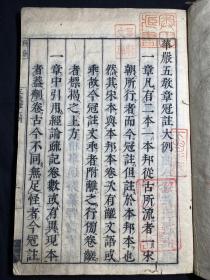 華嚴五教章冠註大例
一章凡有二本一本邦從古所流者一宋
朝所行者而今冠註但註於本邦本也
然其宋本與本邦本卷次有離文語或
乘故今冠註文乖者附離之行間卷離
者標揭之上方
一章中引用經論疏記卷數或有異現本
者蓋翻卷古今不同無足怪者今冠註